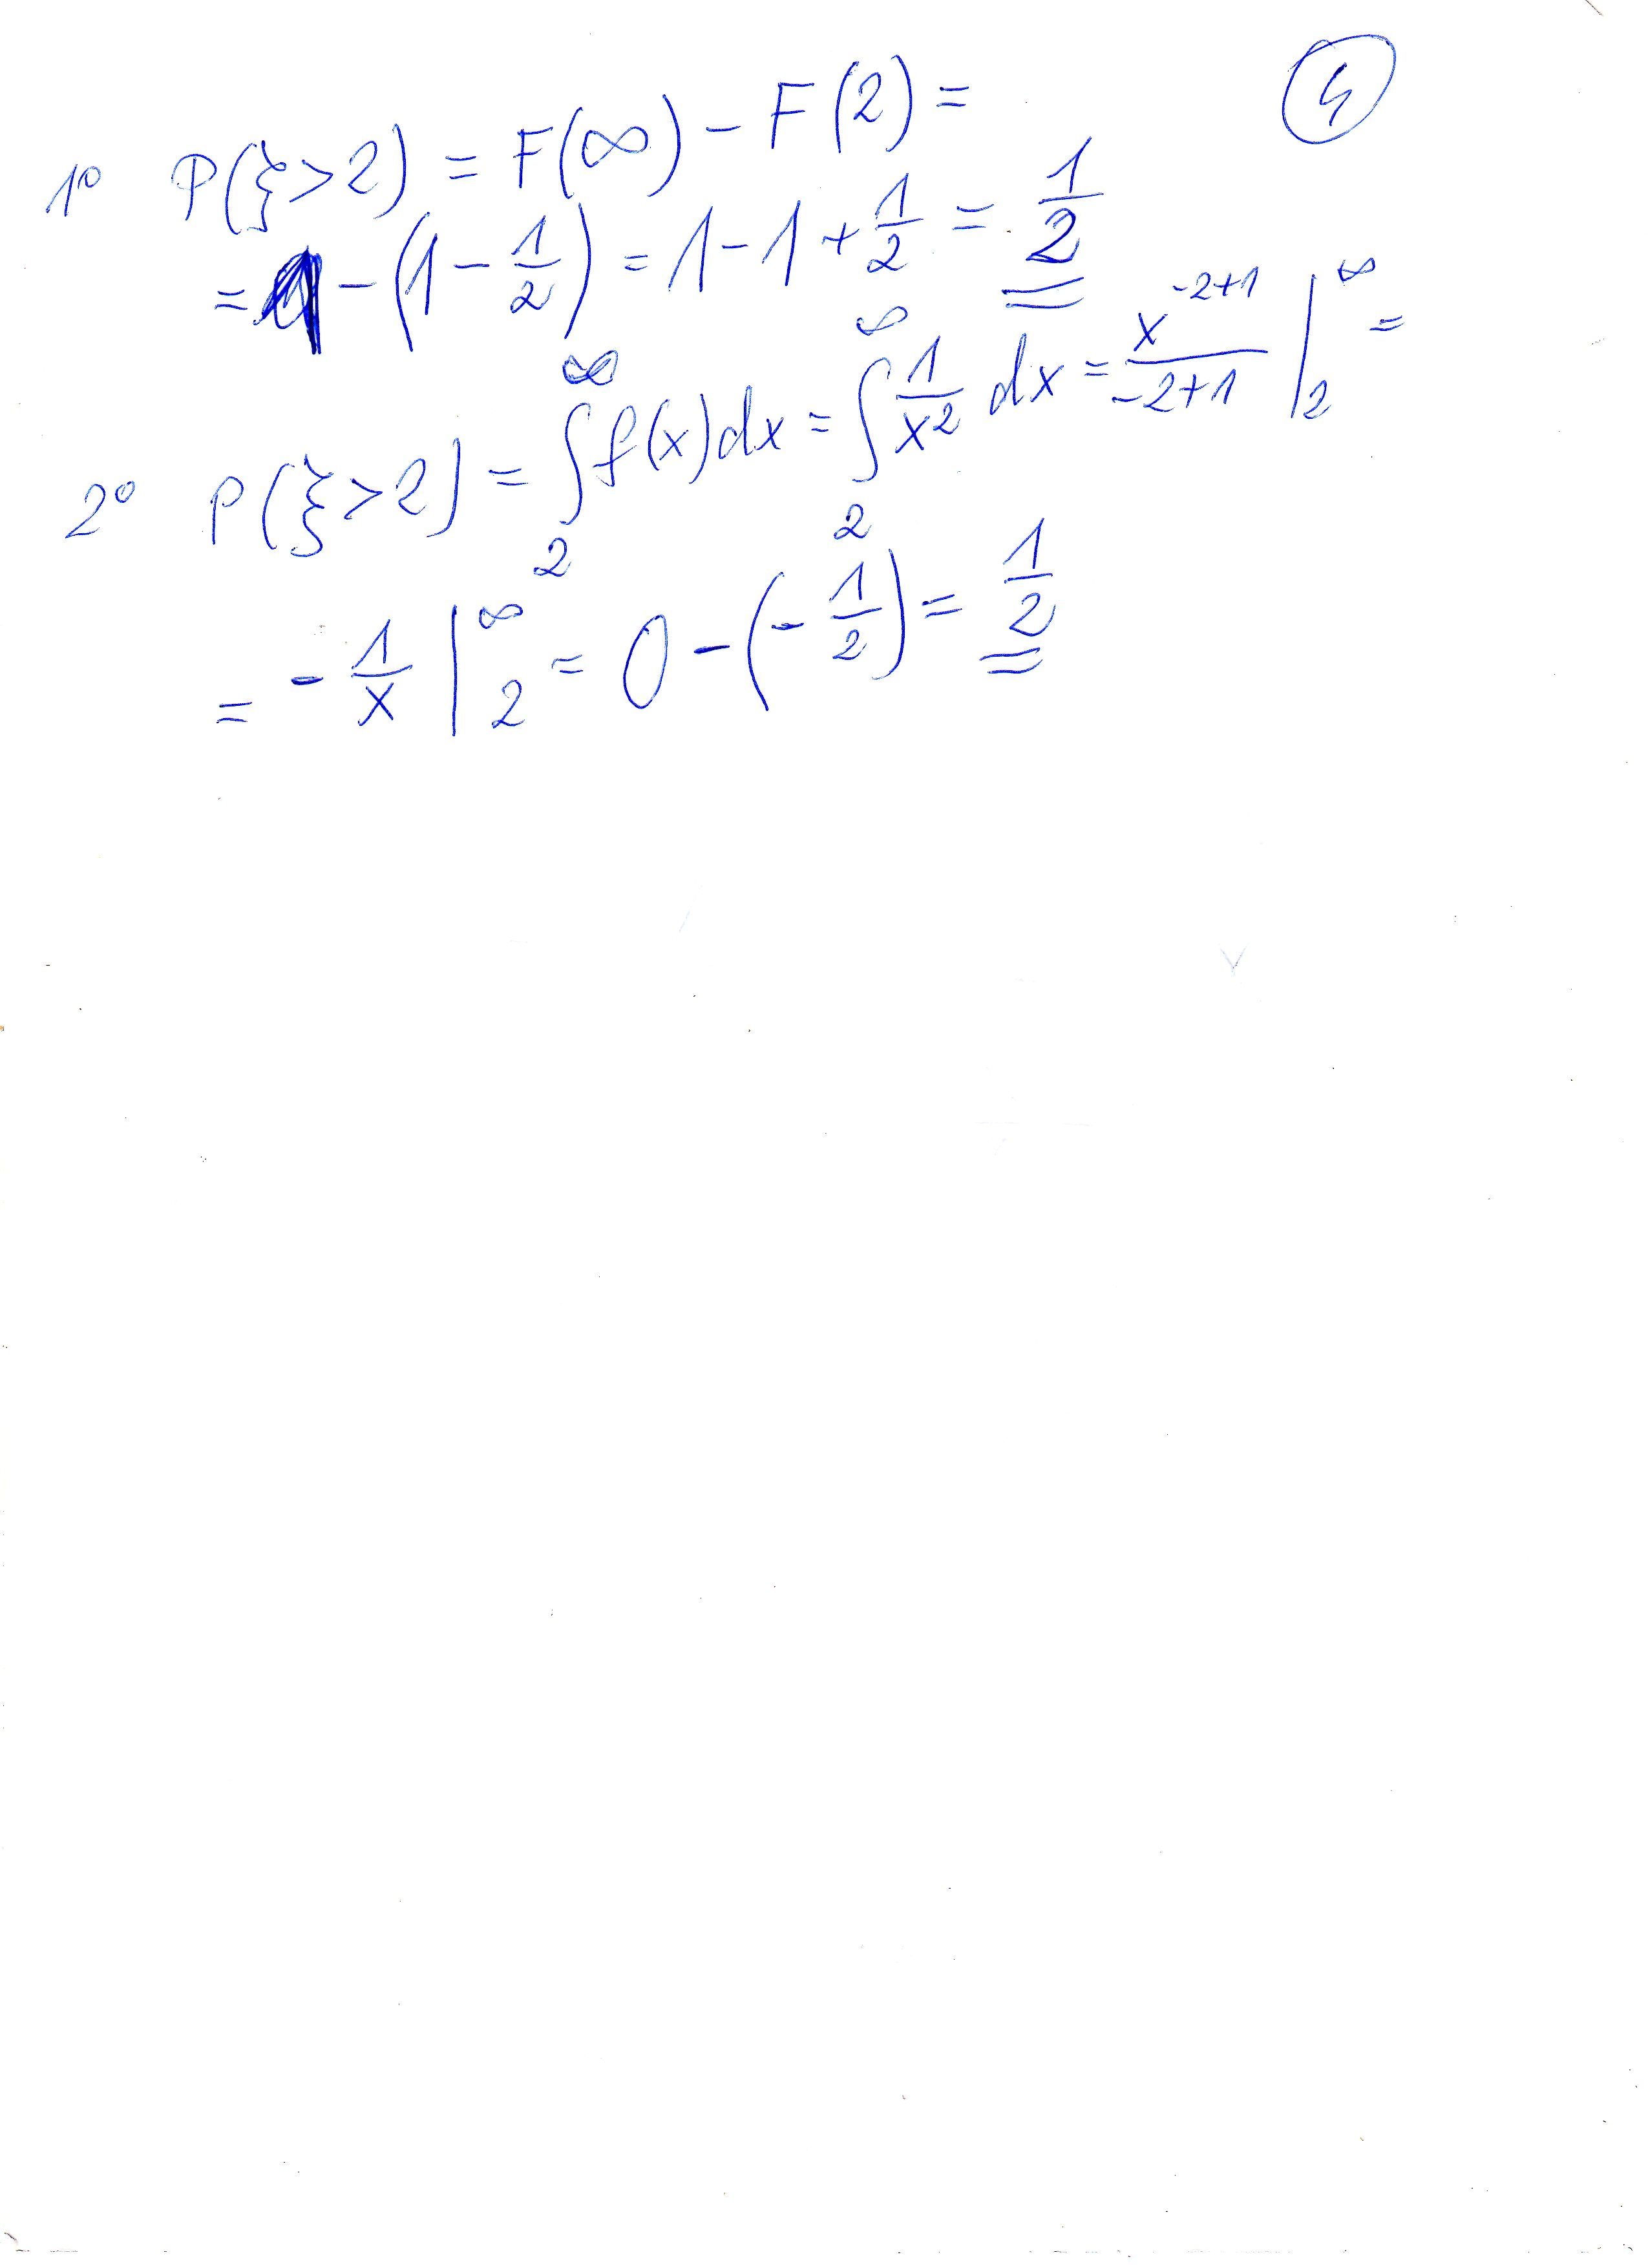 ④
1° P(ξ>2) = F(∞) - F(2) =
= 1 - (1 - 1/2) = 1 - 1 + 1/2 = 1/2
2° P(ξ>2) = ∫_2^∞ f(x)dx = ∫_2^∞ 1/x² dx = x^(-2+1)/(-2+1) |_2^∞ =
= - 1/x |_2^∞ = 0 - (- 1/2) = 1/2